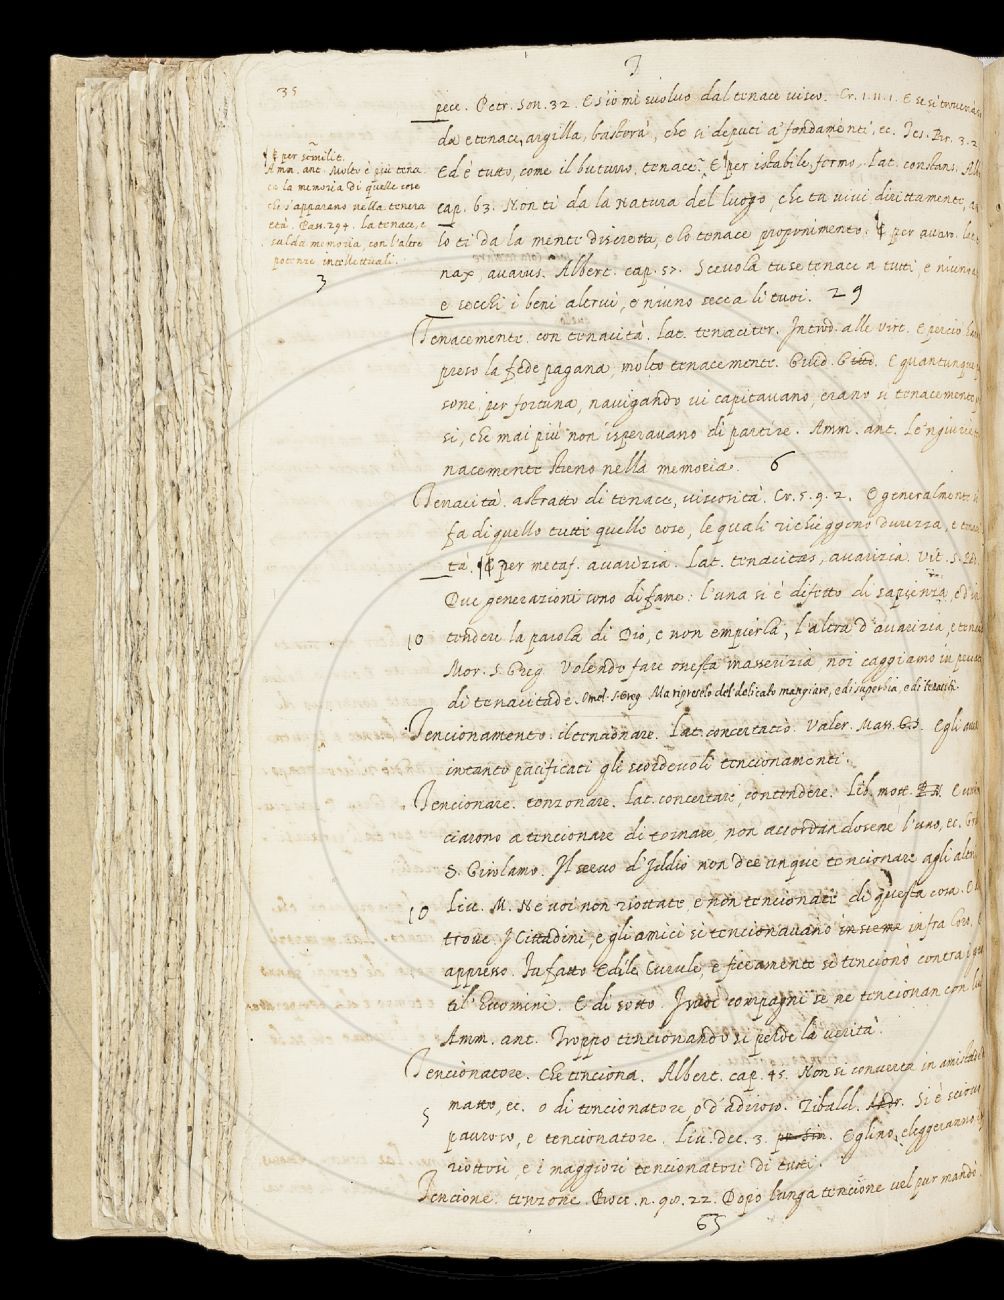 T
35
pece. Petr. Son. 32. E s'io mi svolvo dal tenace visco. Cr. 1. 11. 1. E se si troverà
da e tenace, argilla, basterà, che si deputi a' fondamenti, ec. Tes. Br. 3. 2.
Ed è tutto, come il bitume, tenace. E per istabile, fermo. Lat. constans. Alb.
cap. 63. Non ti da la natura del luogo, che tu vivi dirittamente,
lo ti da la mente discreta, e lo tenace proponimento. ¶ per avaro. lat.
nax, avarus. Albert. cap. 57. Scevola tu se tenace a tutti, e niuno
e secchi i beni altrui, e niuno secca li tuoi. 29
¶ E per similit.
Amm. ant. Molto è più tena
ce la memoria di quelle cose
che s'apparano nella tenera
età. Pass. 294. la tenace, e
salda memoria, con l'altre
potenzie intellettuali.
3
Tenacemente. con tenacità. Lat. tenaciter. Introd. alle virt. E perciò
preso la fede pagana, molto tenacemente. Guid. G. E quantunque
sone, per fortuna, navigando vi capitavano, erano sì tenacemente
si, che mai più non isperavano di partire. Amm. ant. Le'ngiurie
nacemente stieno nella memoria. 6
Tenacità. astratto di tenace, viscosità. Cr. 5. 9. 2. E generalmente si
fa di quello tutte quelle cose, le quali richieggono durezza, e tenaci
tà. ¶ E per metaf. avarizia. Lat. tenacitas, avarizia. Vit. S.
Due generazioni sono di fame: l'una si è difetto di sapienza, e d'in
10 tendere la parola di Dio, e non empierla, l'altra d'avarizia, e tena
Mor. S. Greg. Volendo fare onesta masserizia noi caggiamo in
di tenacitade. Omel. S. Greg. Ma ripreselo del delicato mangiare, e di superbia, e di tenacità.
Tencionamento. il tencionare. Lat. concertatio. Valer. Mass. G.S. Egli
intanto pacificati gli scordevoli tencionamenti.
Tencionare. tenzonare. Lat. concertare, contendere. Lib. mott. E
ciarono a tencionare di tornare, non accordandosene l'uno, ec.
S. Girolamo. Il servo d'Iddio non dee unque tencionare agli altri
10 Liv. M. Ne voi non riottate, e non tencionate di questa cosa. E
trove. I Cittadini, e gli amici si tencionavano insieme infra loro.
appresso. Fu fatto Edile Curule, e fieramente si tencionò contra i
til' huomini. E di sotto. I suoi compagni se ne tencionan con
Amm. ant. Troppo tencionando si perde la verità.
Tencionatore. Che tenciona. Albert. cap. 45. Non si converta in amistà
5 matto, ec. o di tencionatore o d'adiroso. Zibald. Andr. Si è
pauroso, e tencionatore. Liv. dec. 3. pr. Sin. Eglino, eleggeranno
riottosi, e i maggiori tencionatori di tutti.
Tencione. tenzone. Bocc. n. 98. 22. Dopo lunga tencione vel pur mandò
63